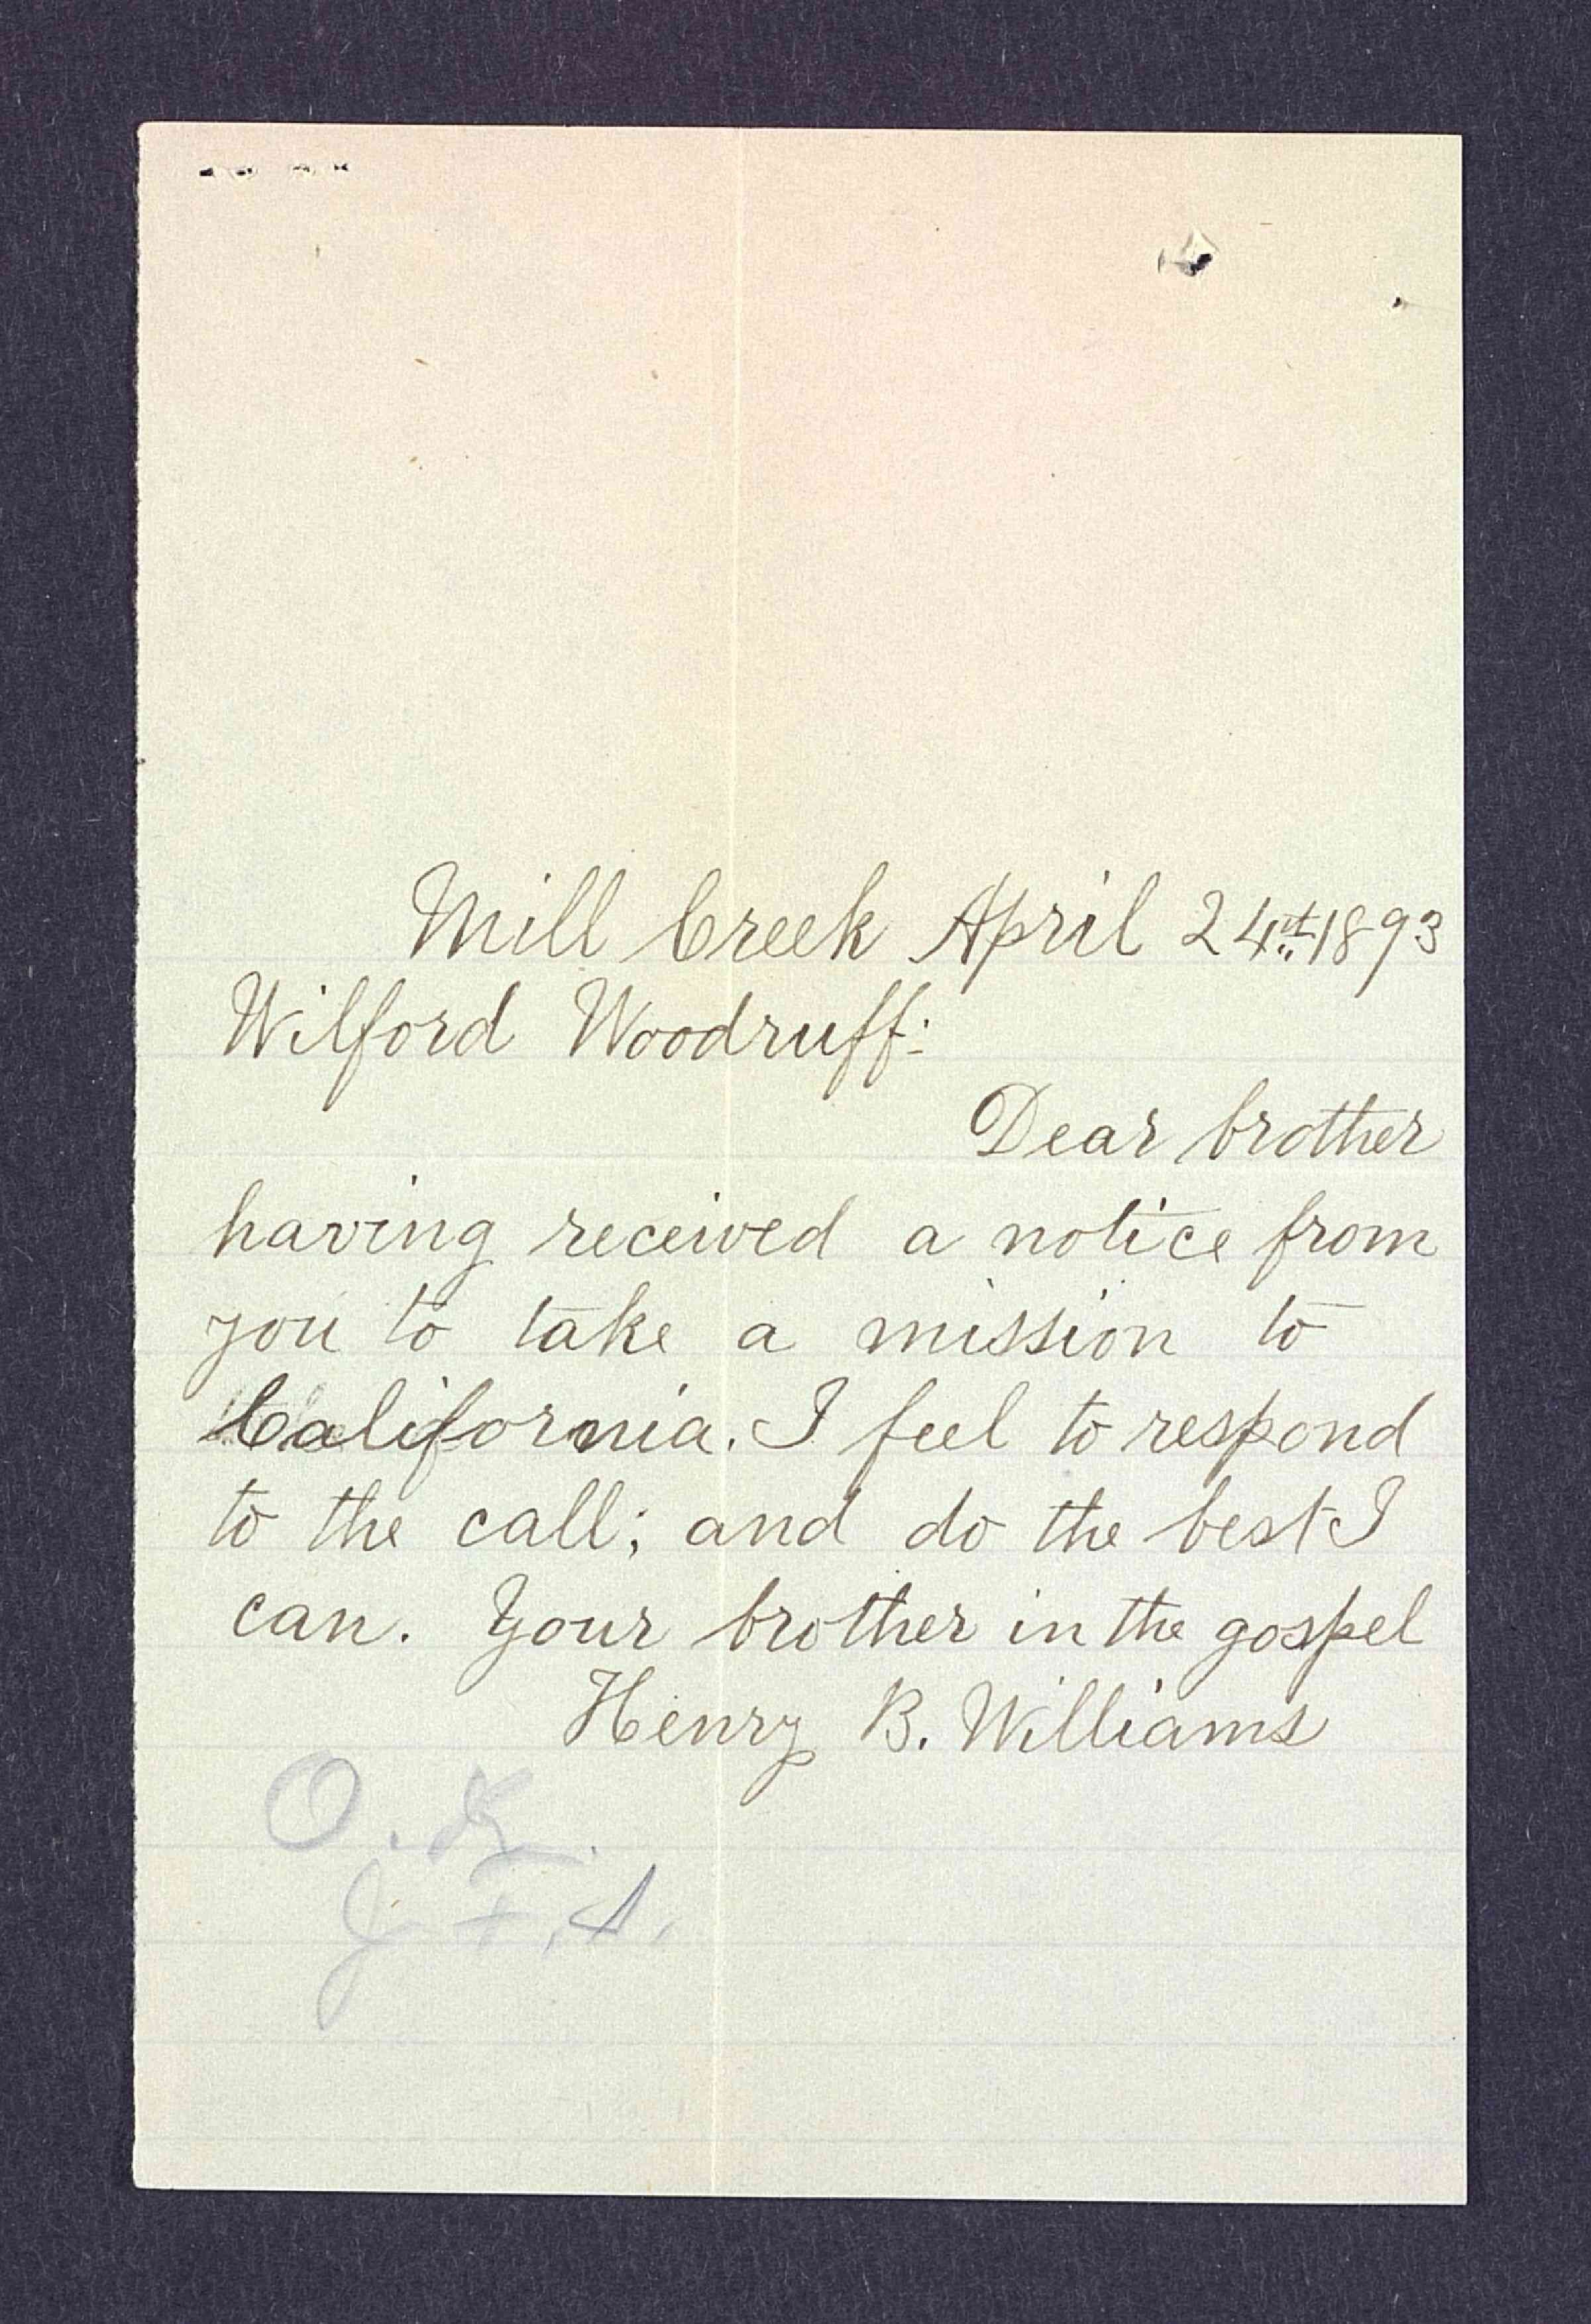 Mill Creek April 24th 1893
Wilford Woodruff:
Dear brother
having received a notice from
you to take a mission to
California. I feel to respond
to the call; and do the best I
can. Your brother in the gospel
Henry B. Williams
O. K.
J. F. S.